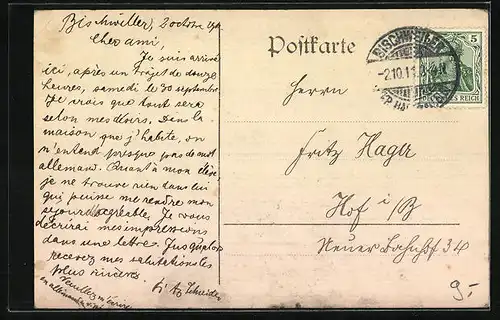 Bischwiller, 2 octobre
Cher ami,
Je suis arrivé
ici, après un trajet de douze
heures, samedi le 30 septembre
Je crois que tout sera
selon mes désirs. Dans la
maison que j'habite, on
n'entend presque pas de mot
allemand. Quant à mon élève
je ne trouve rien dans lui
qui puisse me rendre mon
séjour désagréable. Je vous
écrirai mes impressions
dans une lettre. Jusque là
recevez mes salutations les
plus sincères.
Schneider
Veuillez m'écrire
en allemand
Postkarte
BISCHWEILER
-2.10.11
5
REICH
Herrn
Fritz Hager
Hof i/B
Neuer Bahnhof 34
9.-